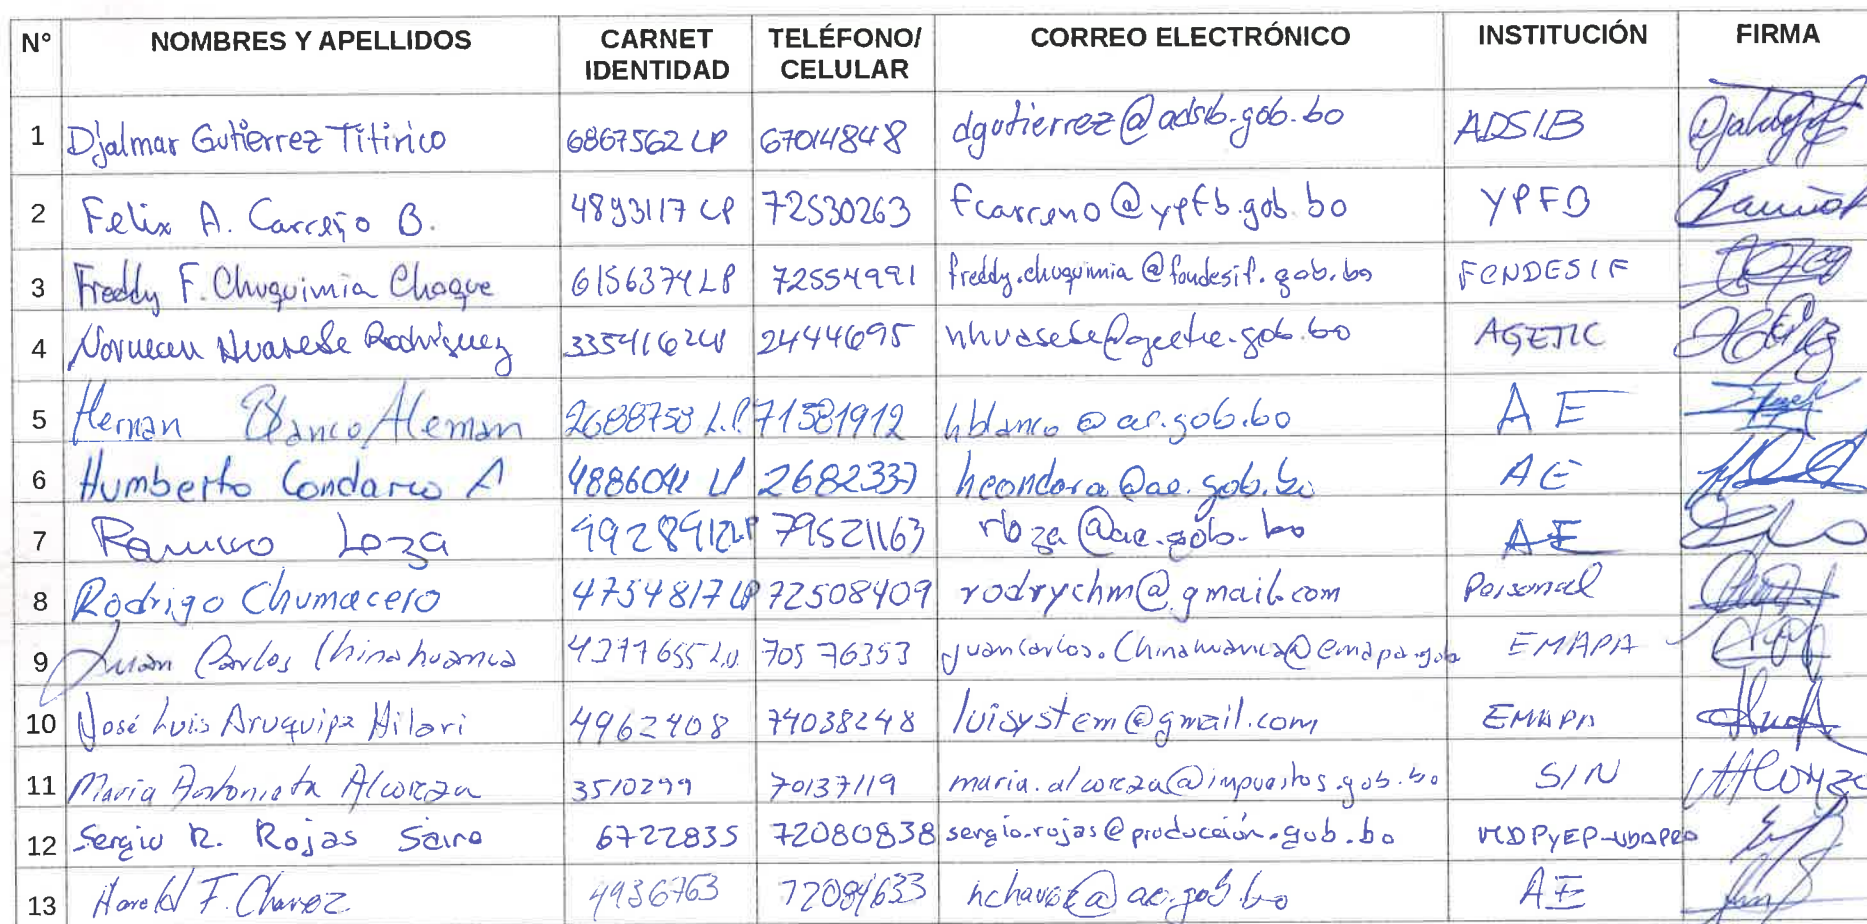 N° NOMBRES Y APELLIDOS CARNET IDENTIDAD TELÉFONO/ CELULAR CORREO ELECTRÓNICO INSTITUCIÓN FIRMA
1 Djalmar Gutierrez Titirico 6867562 LP 67014848 dgutierrez@adsib.gob.bo ADSIB
2 Felix A. Carreño B. 4893117 LP 72530263 fcarreno@ypfb.gob.bo YPFB
3 Freddy F. Chuquimia Choque 6156374 LP 72554991 freddy.chuquimia@fondesif.gob.bo FONDESIF
4 Rodriguez 3354116 24446695 AGETIC
5 Hernan Blanco Aleman 2688758 L.P. 71581912 hblanco@ae.gob.bo AE
6 Humberto Condarco A 4886041 LP 2682337 AE
7 Ramiro Loza 4928912 LP 79521163 rloza@ae.gob.bo AE
8 Rodrigo Chumacero 4754817 LP 72508409 rodrychm@gmail.com Personal
9 Juan Carlos Chinahuanca 4377655 L.P. 70576353 juancarlos.Chinahuanca@emapa.gob EMAPA
10 José Luis Aruquipa Hilari 4962408 74038248 luisystem@gmail.com EMAPA
11 Maria Antonieta Alcoreza 3510299 70137119 maria.alcoreza@impuestos.gob.bo SIN
12 Sergio R. Rojas 6722835 72080838 sergio.rojas@producción.gob.bo
13 Harold F. Chavez 4936763 72084633 hchavez@ae.gob.bo AE